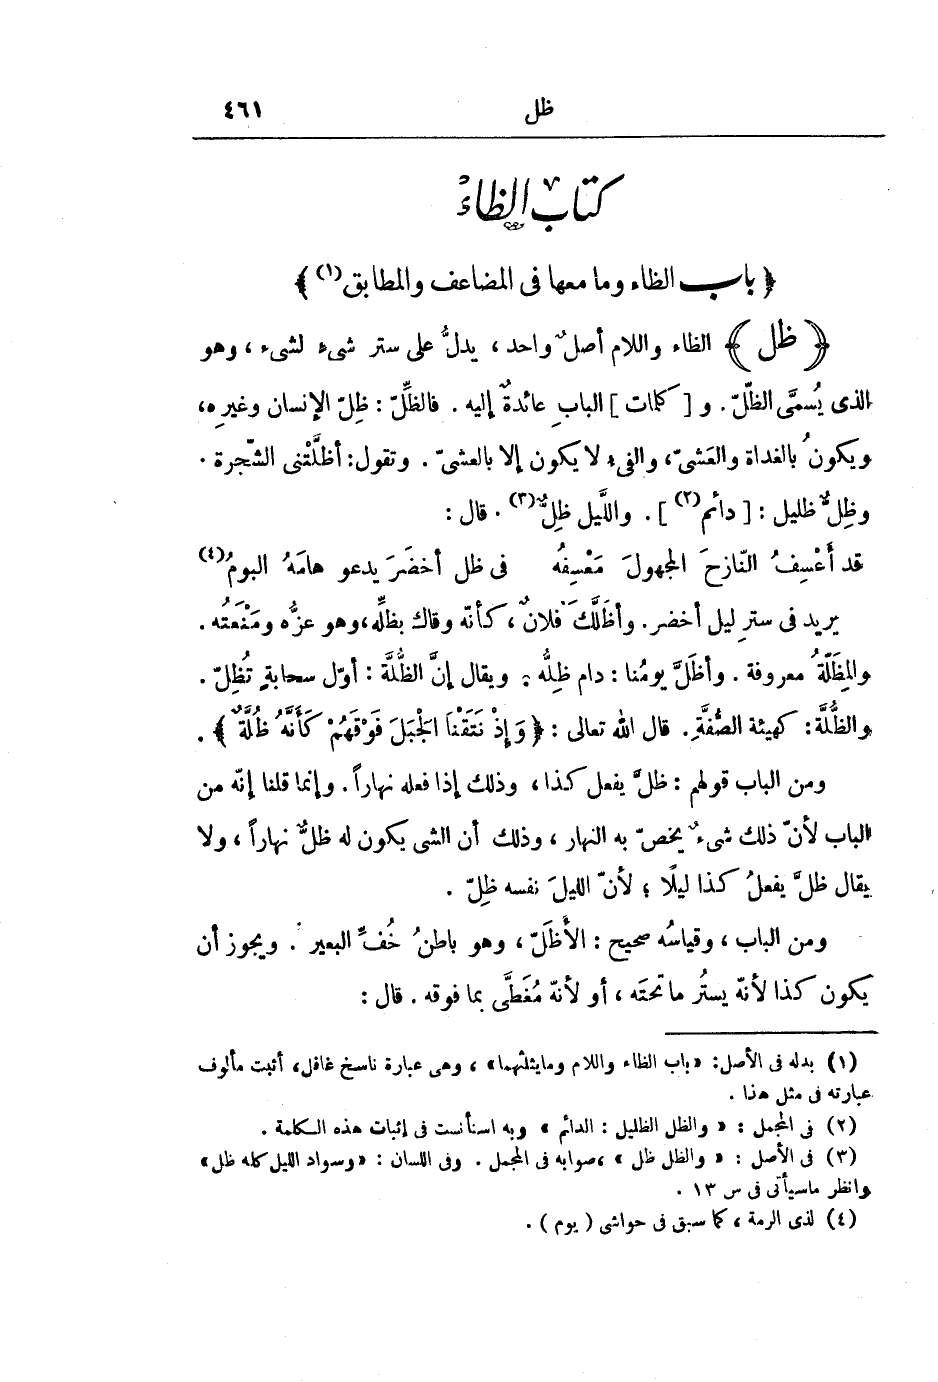 ظل ٤٦١
كتاب الظاء
﴿ باب الظاء وما معها فى المضاعف والمطابق(١) ﴾
﴿ ظل ﴾ الظاء واللام أصلٌ واحد، يدلُّ على ستر شىءٍ لشىء، وهو
الذى يُسمَّى الظّلّ. و [ كلمات ] البابِ عائدةٌ إليه. فالظِّلّ: ظِلّ الإنسان وغيرِه،
ويكونُ بالغداة والعَشىّ، والفىء لا يكون إلا بالعشىّ. وتقول: أظلَّتْنى الشّجرة.
وظِلٌّ ظليل: [ دائم(٢) ]. واللَّيل ظِلٌّ(٣). قال:
قد أَعْسِفُ النّازحَ المجهولَ مَعْسِفُه فى ظل أخضَرَ يدعو هامَهُ البومُ(٤)
يريد فى سترِ ليل أخضر. وأظَلَّكَ فلانٌ، كأنّه وقاك بظلِّه، وهو عزُّه ومَنْعَتُه.
والمِظَلّةُ معروفة. وأظَلَّ يومُنا: دام ظِلُّه. ويقال إنَّ الظُّلَّة: أوّل سحابةٍ تُظِلّ.
والظُّلَّة: كهيئة الصُّفَّةِ. قال الله تعالى: ﴿ وَإِذْ نَتَقْنَا الْجَبَلَ فَوْقَهُمْ كَأَنَّهُ ظُلَّةٌ ﴾.
ومن الباب قولهم: ظلَّ يفعل كذا، وذلك إذا فعله نهاراً. وإنما قلنا إنّه من
الباب لأنّ ذلك شىءٌ يخصّ به النهار، وذلك أن الشى يكون له ظلٌّ نهاراً، ولا
يقال ظلَّ يفعلُ كذا ليلًا؛ لأنّ الليلَ نفسه ظِلّ.
ومن الباب، وقياسُه صحيح: الأَظَلّ، وهو باطنُ خُفِّ البعير. ويجوز أن
يكون كذا لأنّه يستُر ما تحتَه، أو لأنّه مُغَطًّى بما فوقه. قال:
(١) بدله فى الأصل: «باب الظاء واللام ومايثلثهما»، وهى عبارة ناسخ غافل، أثبت مألوف
عبارته فى مثل هذا.
(٢) فى المجمل: « والظل الظليل: الدائم » وبه استأنست فى إثبات هذه الكلمة.
(٣) فى الأصل: « والظل ظل »، صوابه فى المجمل. وفى اللسان: «وسواد الليل كله ظل»
وانظر ماسيأتى فى س ١٣.
(٤) لذى الرمة، كما سبق فى حواشى ( يوم ).